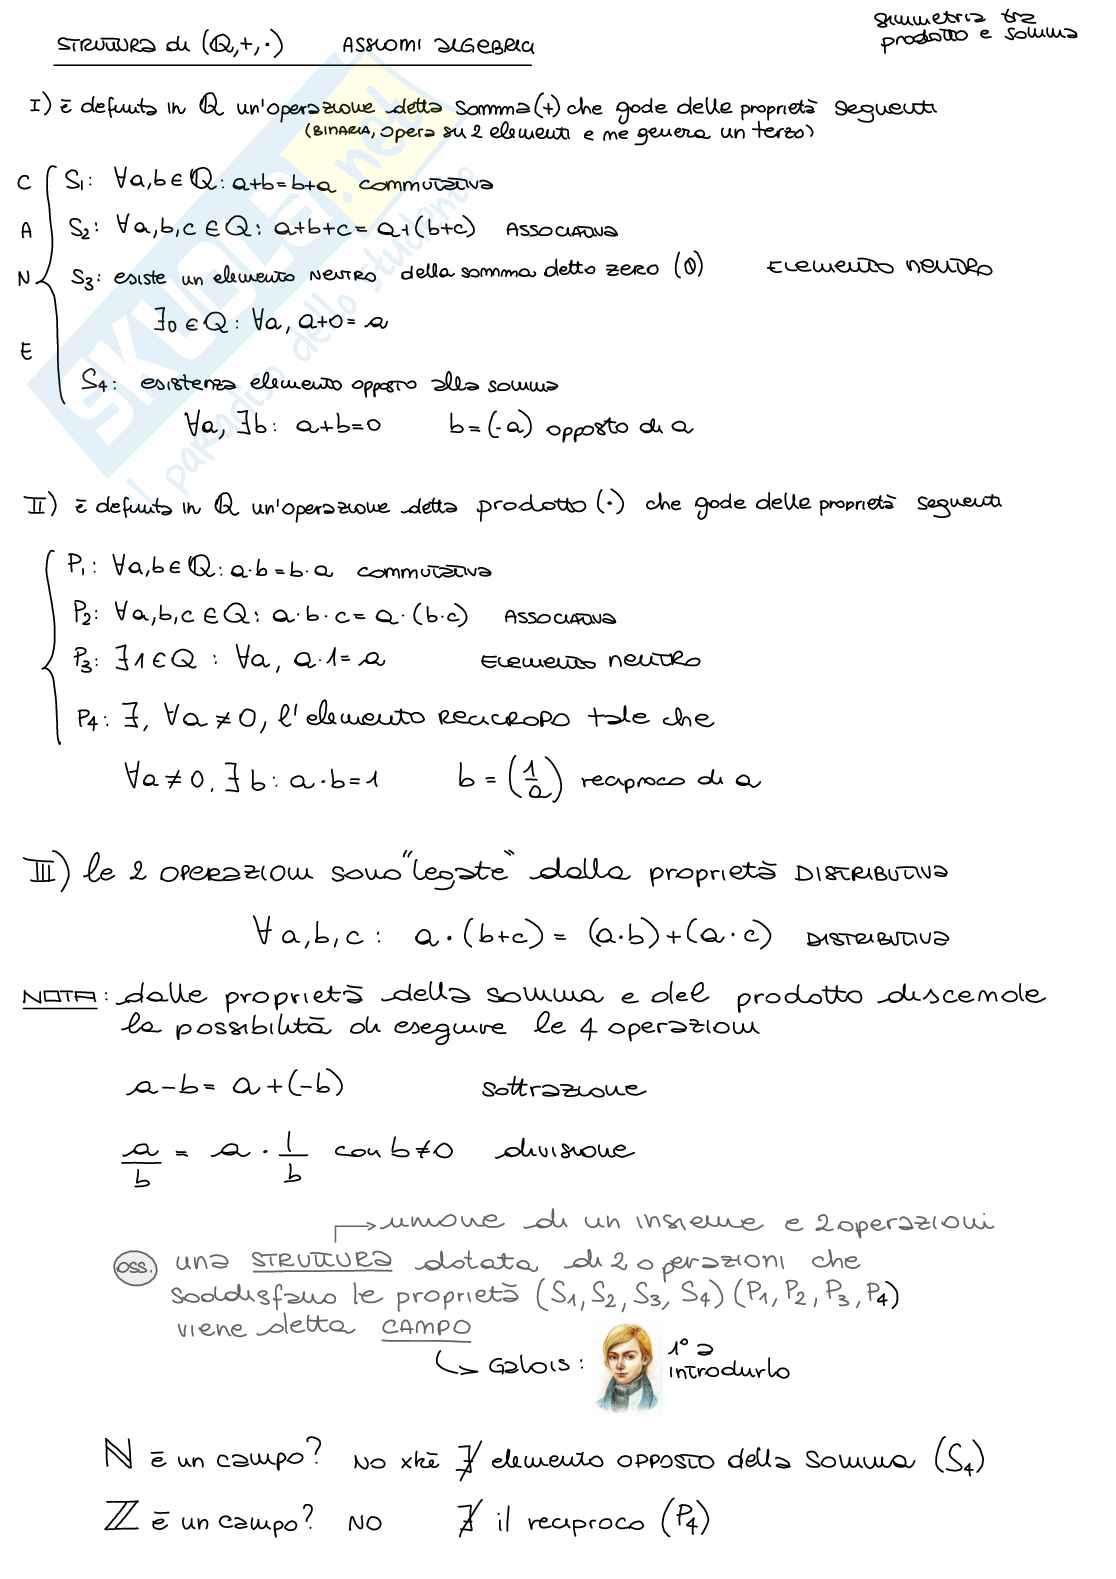 STRUTTURA di (ℚ,+,·) ASSIOMI ALGEBRICI
simmetria tra
prodotto e somma
I) è definita in ℚ un'operazione detta somma (+) che gode delle proprietà seguenti
(BINARIA, opera su 2 elementi e me genera un terzo)
C S₁: ∀a,b∈ℚ: a+b=b+a commutativa
A S₂: ∀a,b,c∈Q: a+b+c=a+(b+c) ASSOCIATIVA
N S₃: esiste un elemento NEUTRO della somma detto zero (0) ELEMENTO NEUTRO
∃0∈Q: ∀a, a+0=a
E
S₄: esistenza elemento opposto alla somma
∀a, ∃b: a+b=0 b=(-a) opposto di a
II) è definita in ℚ un'operazione detta prodotto (·) che gode delle proprietà seguenti
P₁: ∀a,b∈ℚ: a·b=b·a commutativa
P₂: ∀a,b,c∈Q: a·b·c=a·(b·c) ASSOCIATIVA
P₃: ∃1∈Q: ∀a, a·1=a ELEMENTO NEUTRO
P₄: ∃, ∀a≠0, l'elemento RECICROPO tale che
∀a≠0, ∃b: a·b=1 b=(1/a) reciproco di a
III) le 2 OPERAZIONI sono "legate" dalla proprietà DISTRIBUTIVA
∀a,b,c: a·(b+c)=(a·b)+(a·c) DISTRIBUTIVA
NOTA: dalle proprietà della somma e del prodotto discende
la possibilità di eseguire le 4 operazioni
a-b=a+(-b) sottrazione
a/b = a·1/b con b≠0 divisione
→ unione di un insieme e 2 operazioni
OSS. una STRUTTURA dotata di 2 operazioni che
soddisfano le proprietà (S₁,S₂,S₃,S₄)(P₁,P₂,P₃,P₄)
viene detta CAMPO
↳ Galois: 1° a
introdurlo
ℕ è un campo? NO xkè ∄ elemento OPPOSTO della somma (S₄)
ℤ è un campo? NO ∄ il reciproco (P₄)
SKUOLA.net
il paradiso dello studente